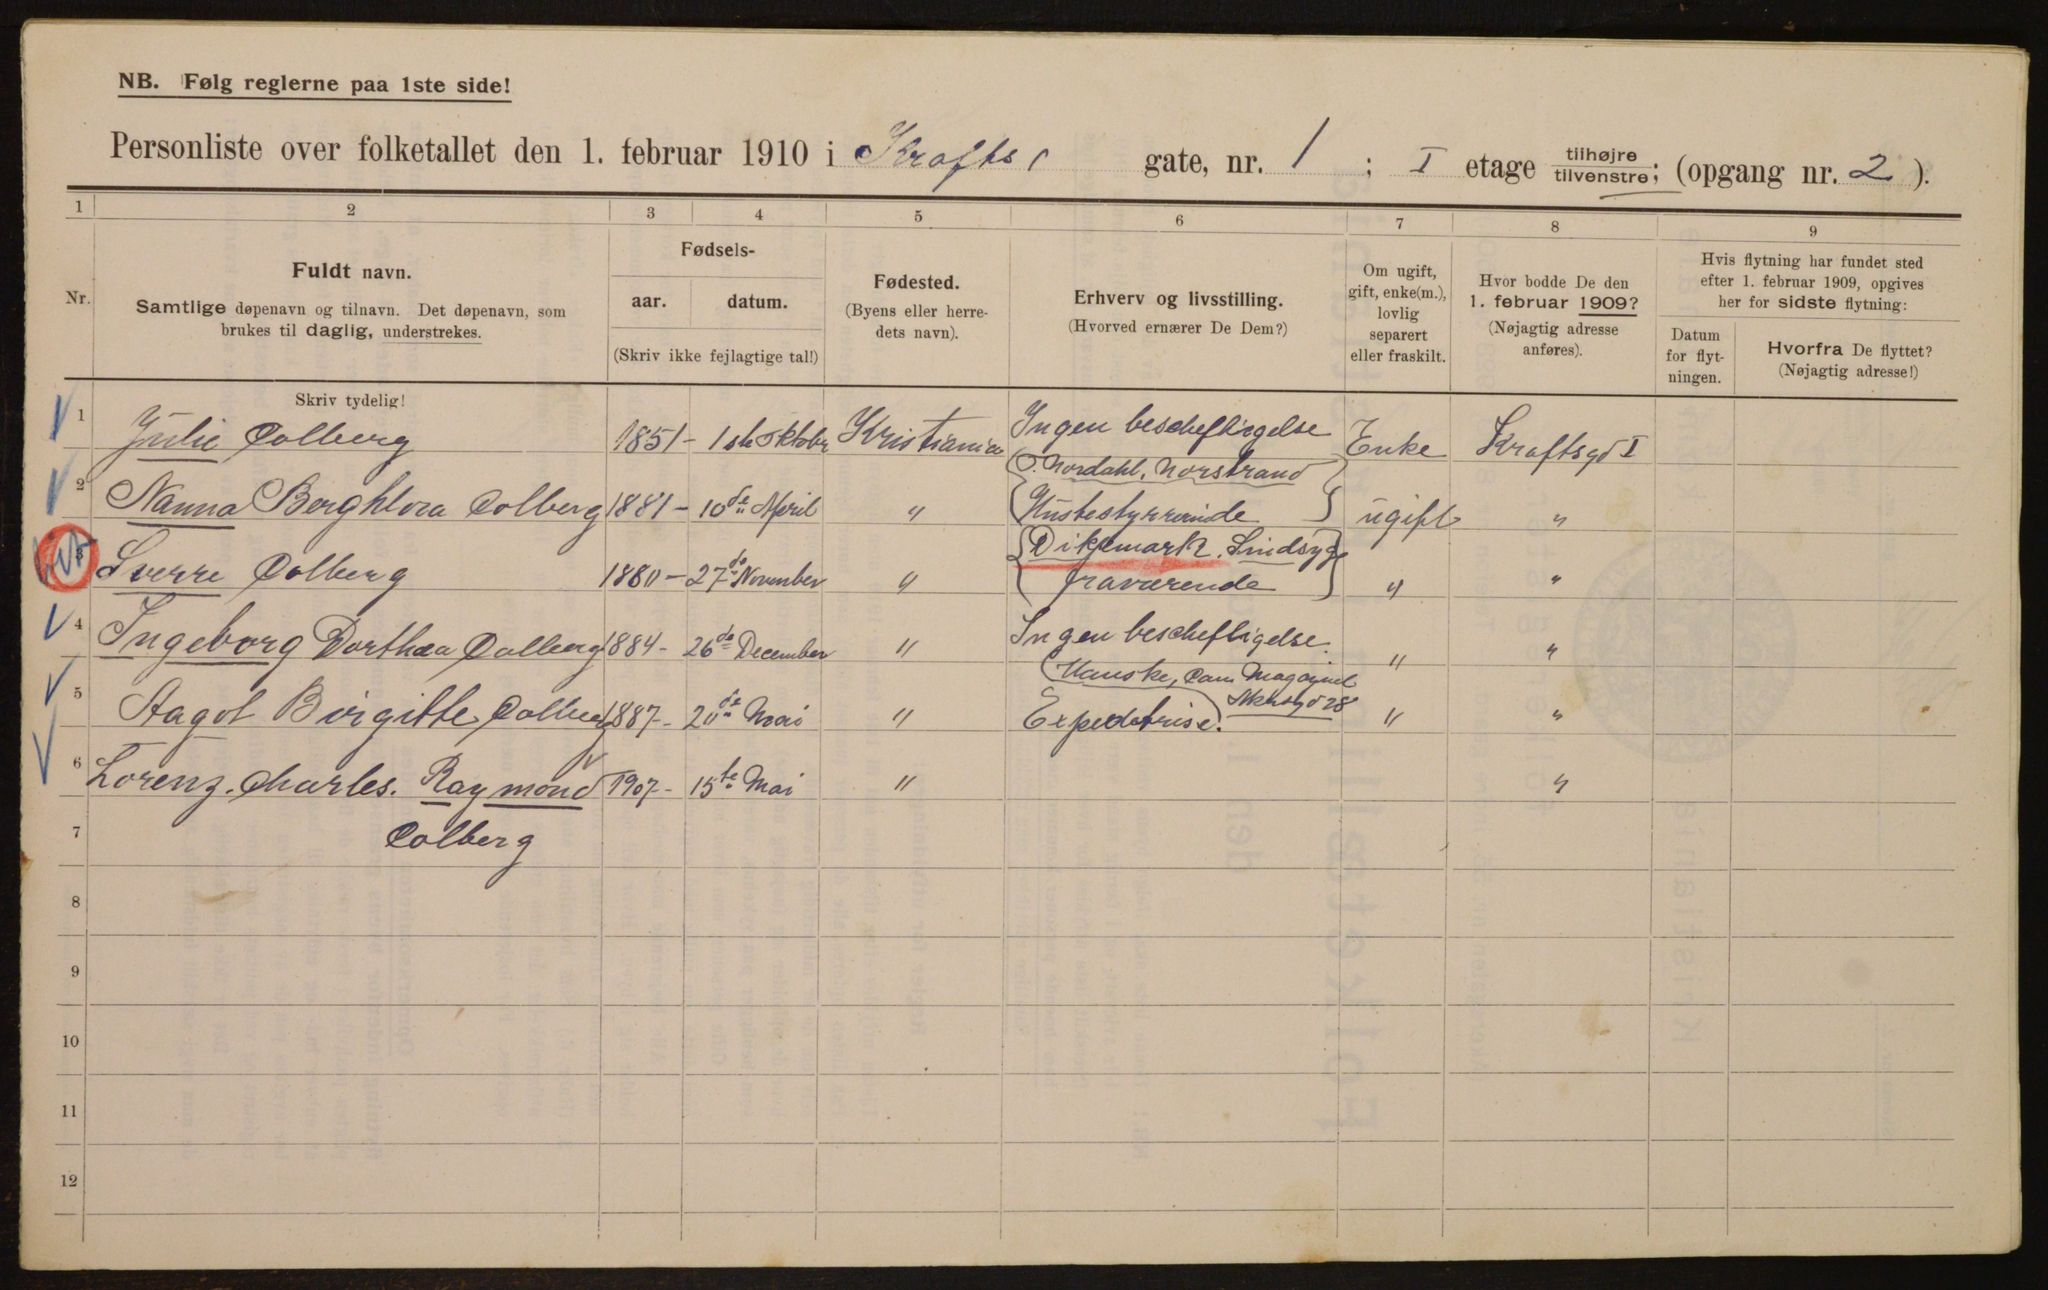 NB. Følg reglerne paa 1ste side!
Personliste over folketallet den 1. februar 1910 i Krafts gate, nr. 1 ; I etage tilhøjre tilvenstre; (opgang nr. 2 ).
1 2 3 4 5 6 7 8 9
Nr.
Fuldt navn.
Samtlige døpenavn og tilnavn. Det døpenavn, som
brukes til daglig, understrekes.
Skriv tydelig!
Fødsels-
aar. datum.
(Skriv ikke fejlagtige tal!)
Fødested.
(Byens eller herre-
dets navn).
Erhverv og livsstilling.
(Hvorved ernærer De Dem?)
Om ugift,
gift, enke(m.),
lovlig
separert
eller fraskilt.
Hvor bodde De den
1. februar 1909?
(Nøjagtig adresse
anføres).
Hvis flytning har fundet sted
efter 1. februar 1909, opgives
her for sidste flytning:
Datum
for flyt-
ningen.
Hvorfra De flyttet?
(Nøjagtig adresse!)
1 Julie Colberg 1851 - 1ste Oktobr Kristiania Ingen bescheftigelse Enke Kraftsgd I
Nordahl, Norstrand
2 Nanna Borghlora Colberg 1881 - 10de April " Husbestyrrerinde ugift "
Dikemark, Sindsyg
3 Sverre Colberg 1880 - 27de November " fraværende " "
4 Ingeborg Dorthea Colberg 1884 - 26de December " Ingen bescheftigelse. " "
Hanske, Cam Magasinet
5 Aagot Birgitte Colberg 1887 - 20de Mai " Expeditrise. " "
6 Lorenz. Charles. Raymond 1907 - 15te Mai " "
7 Colberg
8
9
10
11
12